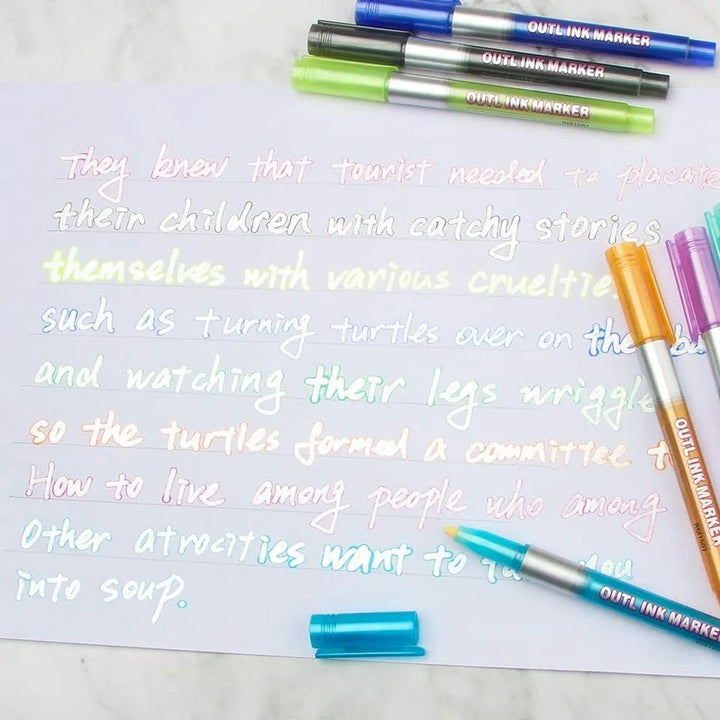 OUTL INK MARKER
OUTL INK MARKER
OUTL INK MARKER
They knew that tourist needed to placate
their children with catchy stories
themselves with various cruelties
such as turning turtles over on the
and watching their legs wriggle
so the turtles formed a committee
How to live among people who among
Other atrocities want to you
into soup.
OUTL INK MARKER
OUTL INK MARKER